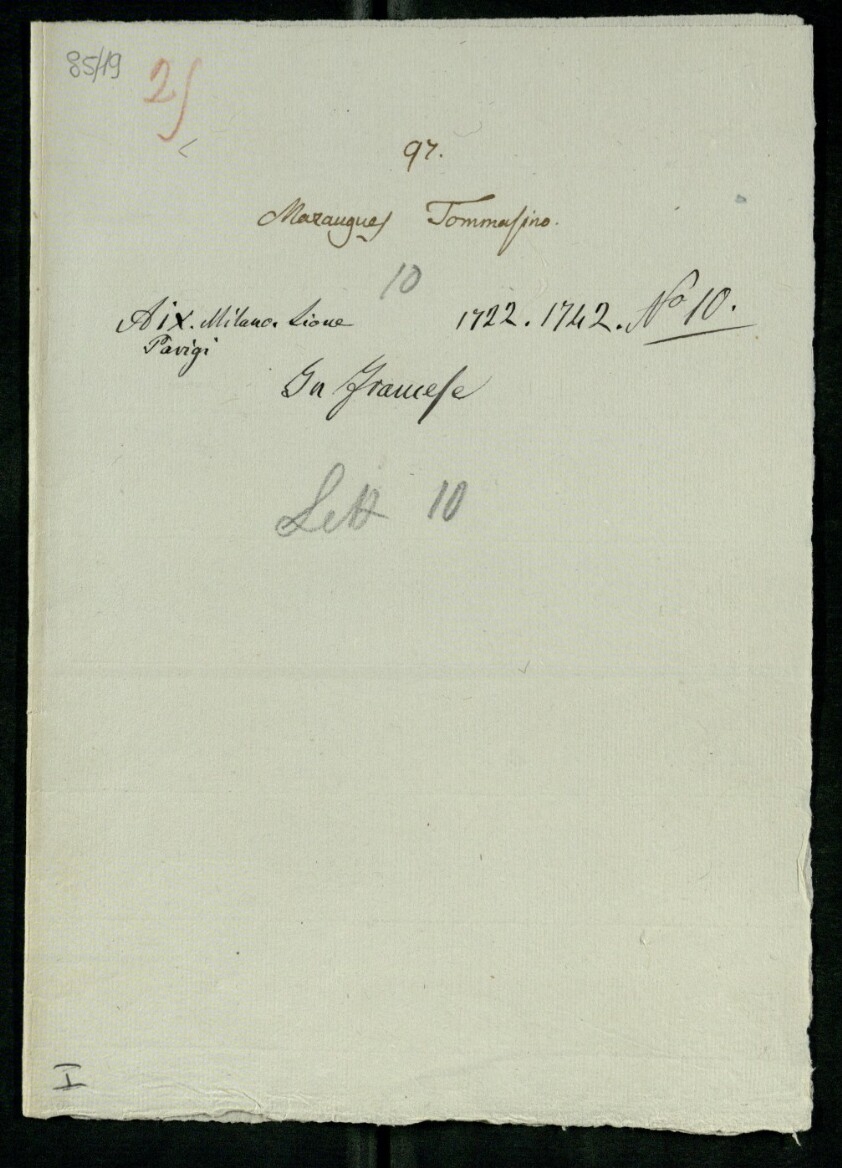 85/19
25
97.
Mazaugues Tommasino.
10
Aix. Milano. Lione 1722. 1742. No 10.
Parigi
In Francese
Lett 10
I